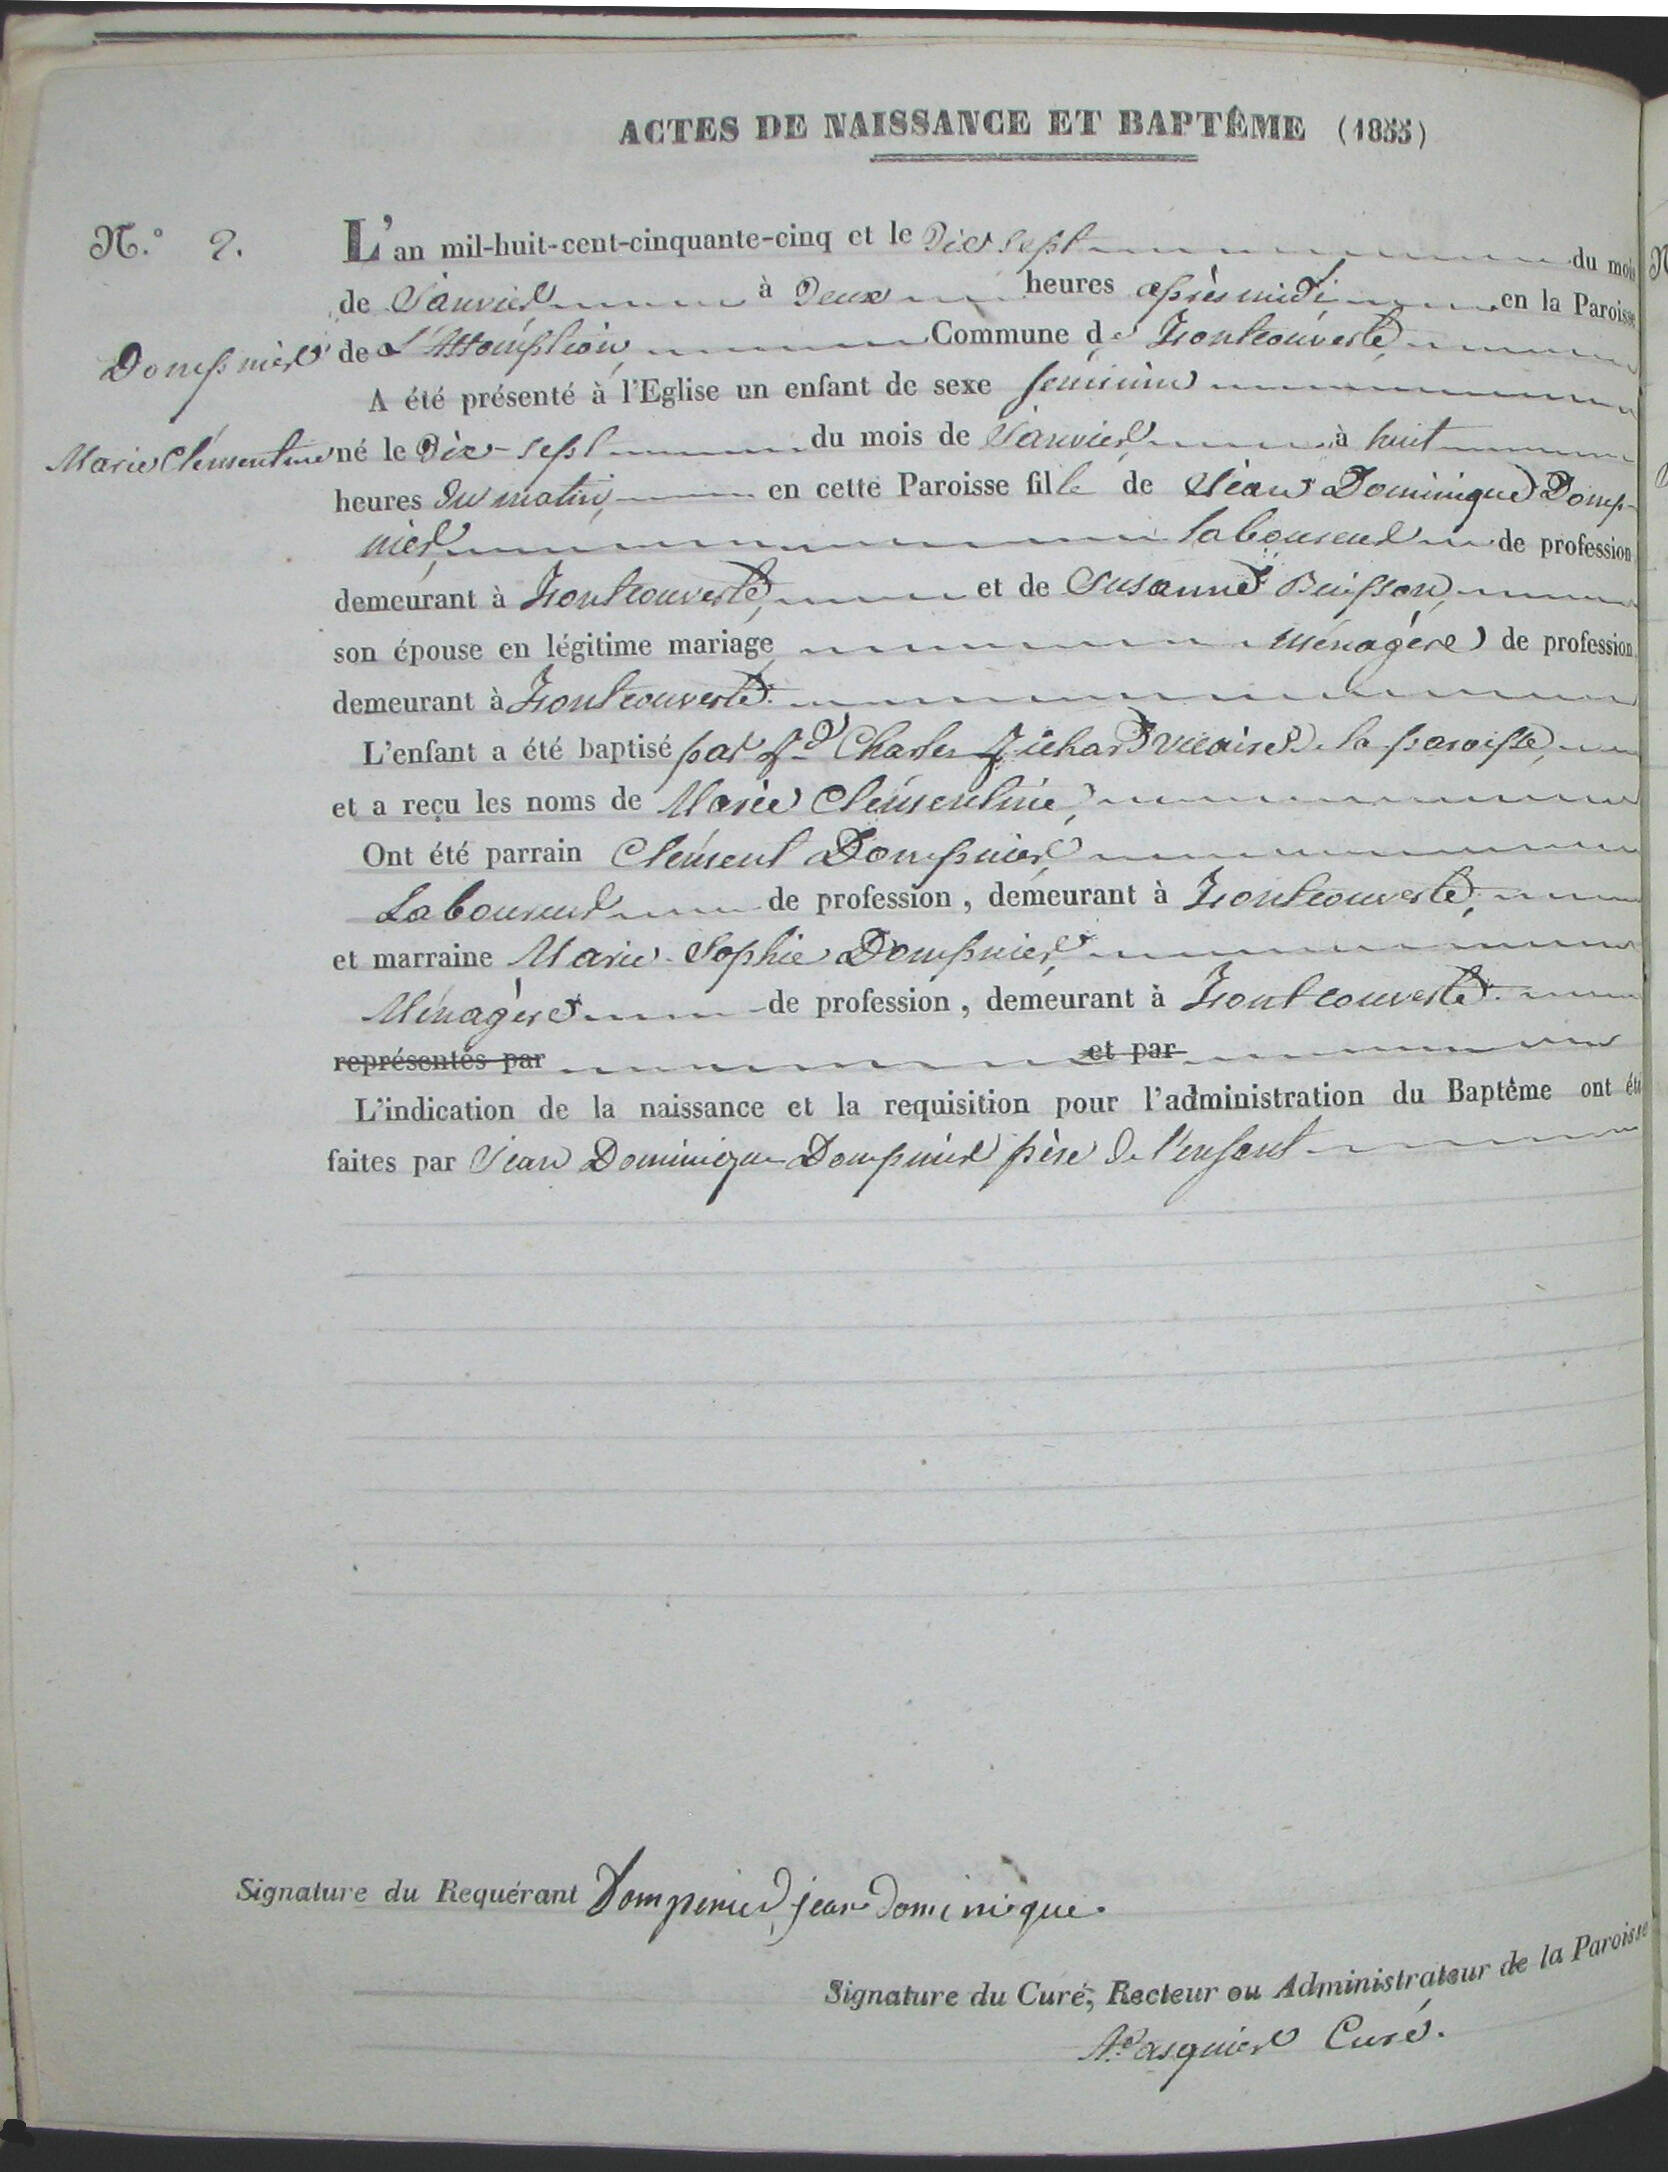 ACTES DE NAISSANCE ET BAPTÊME (1855)
N.° 2.
L'an mil-huit-cent-cinquante-cinq et le Dix sept du mois
de Janvier à Deux heures après midi en la Paroisse
Dompnier
de L'Assomption, Commune de Fontcouverte,
A été présenté à l'Eglise un enfant de sexe feminin
Marie Clémentine
né le Dix-sept du mois de Janvier à huit
heures Du matin, en cette Paroisse fille de Jean Dominique Domp-
nier, laboureur de profession
demeurant à Fontcouverte, et de Susanne Buisson,
son épouse en légitime mariage ménagère de profession,
demeurant à Fontcouverte.
L'enfant a été baptisé par Charles vicaire de la paroisse,
et a reçu les noms de Marie Clémentine,
Ont été parrain Clément Dompnier
Laboureur de profession, demeurant à Fontcouverte,
et marraine Marie-Sophie Dompnier,
Ménagère de profession, demeurant à Fontcouverte.
représentés par et par
L'indication de la naissance et la requisition pour l'administration du Baptême ont été
faites par Jean Dominique Dompnier père de l'enfant
Signature du Requérant Dompnier jean dominique.
Signature du Curé, Recteur ou Administrateur de la Paroisse
Pasquier Curé.